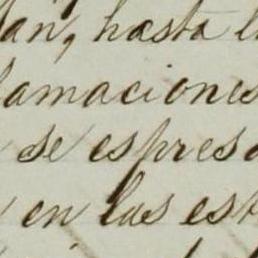 an, hasta l
lamaciones
se espresa
en las est